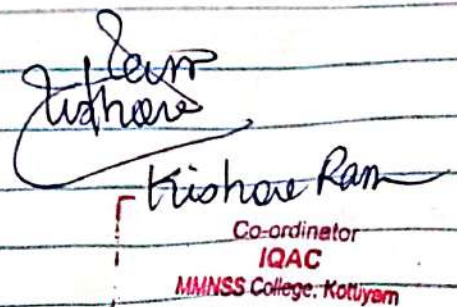 Kishore Ram
Co-ordinator
IQAC
MMNSS College, Kottiyam